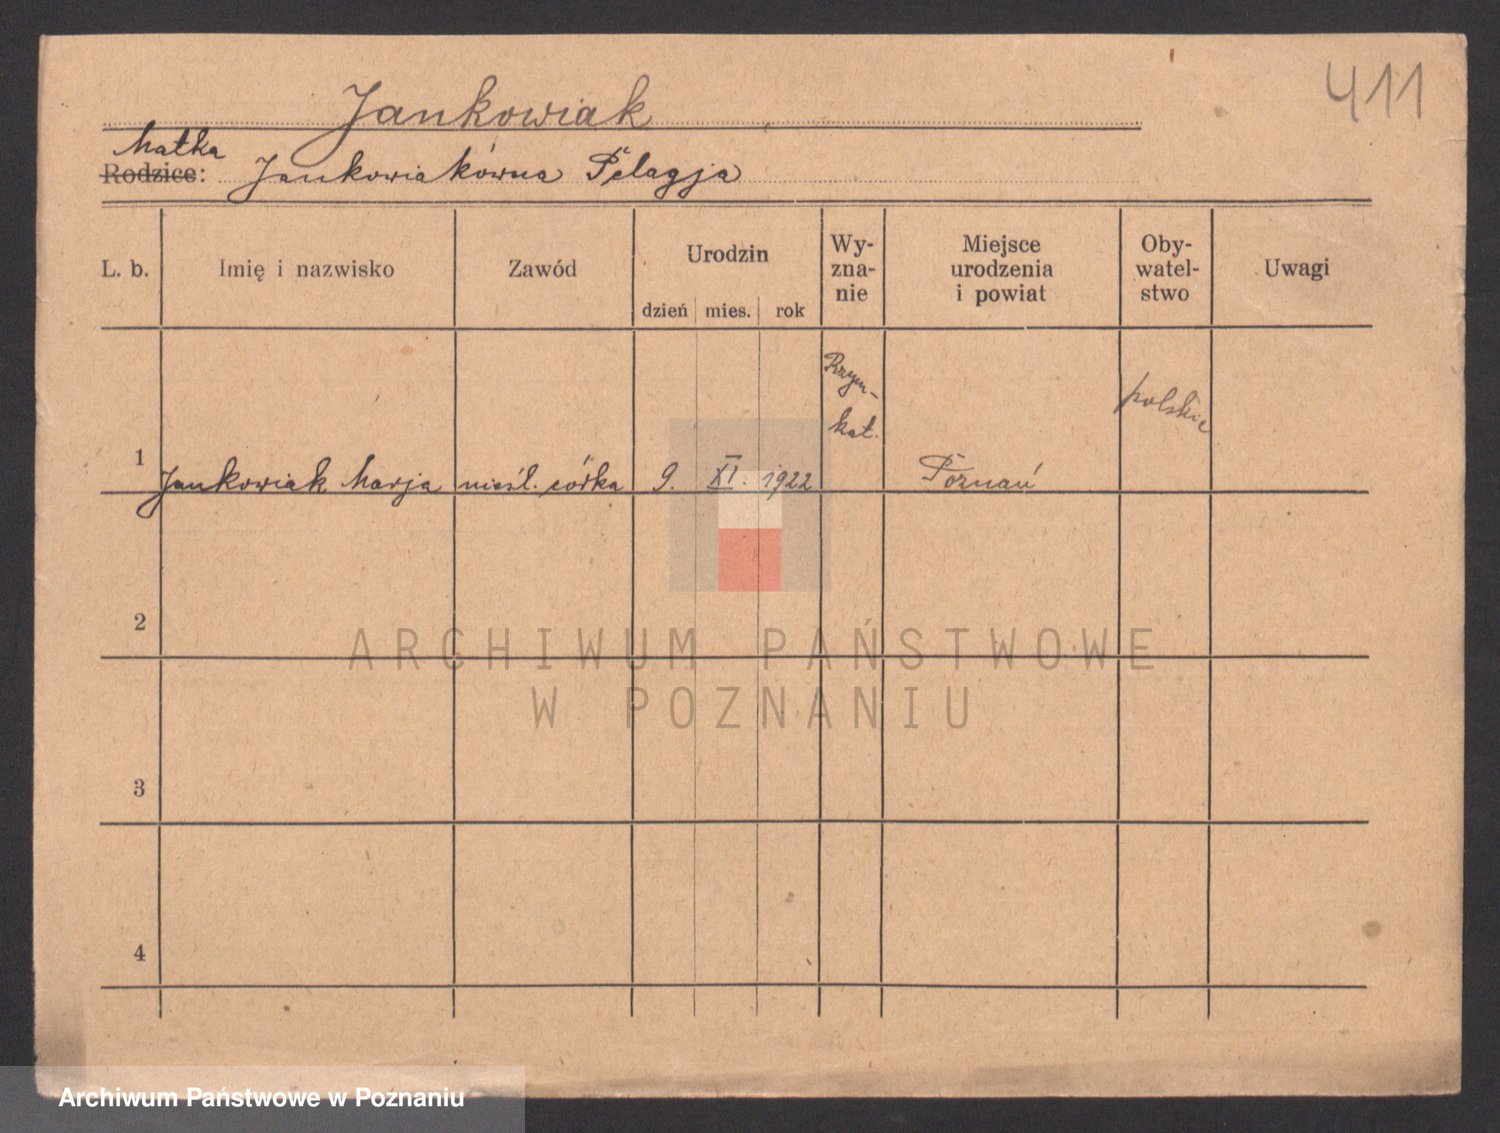 411
Jankowiak
Matka
Rodzice: Jankowiakówna Pelagja
L. b. Imię i nazwisko Zawód Urodzin dzień mies. rok Wy-zna-nie Miejsce urodzenia i powiat Oby-watel-stwo Uwagi
Rzym-
kat.
polskie
1 Jankowiak Marja nieśl. córka 9. XI. 1922 Poznań
2
ARCHIWUM PAŃSTWOWE
W POZNANIU
3
4
Archiwum Państwowe w Poznaniu